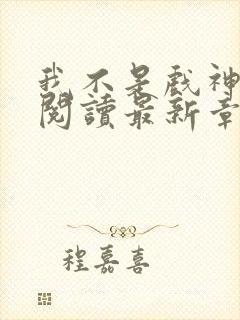 我不是戲神
閱讀最新章
程嘉喜